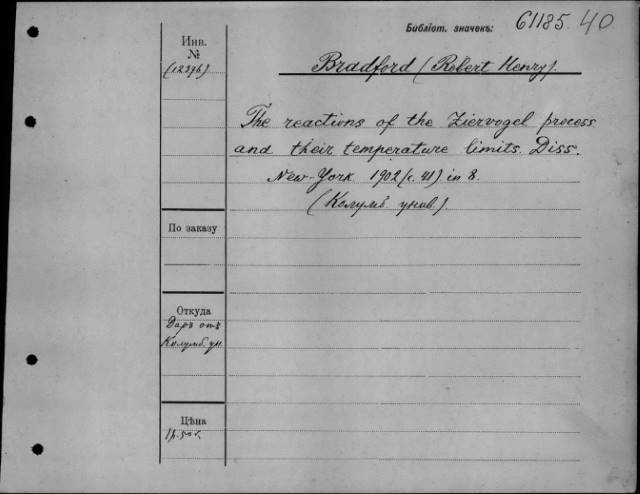 Библіот. значекъ: 61185. 40
Инв.
№
(12376)
Bradford (Robert Henry).
The reactions of the Ziervogel process
and their temperature limits. Diss.
New-York 1902 (с. 41) in 8.
(Колумб. унив.).
По заказу
Откуда
Даръ отъ
Колумб. ун.
Цѣна
1 р. 50 к.